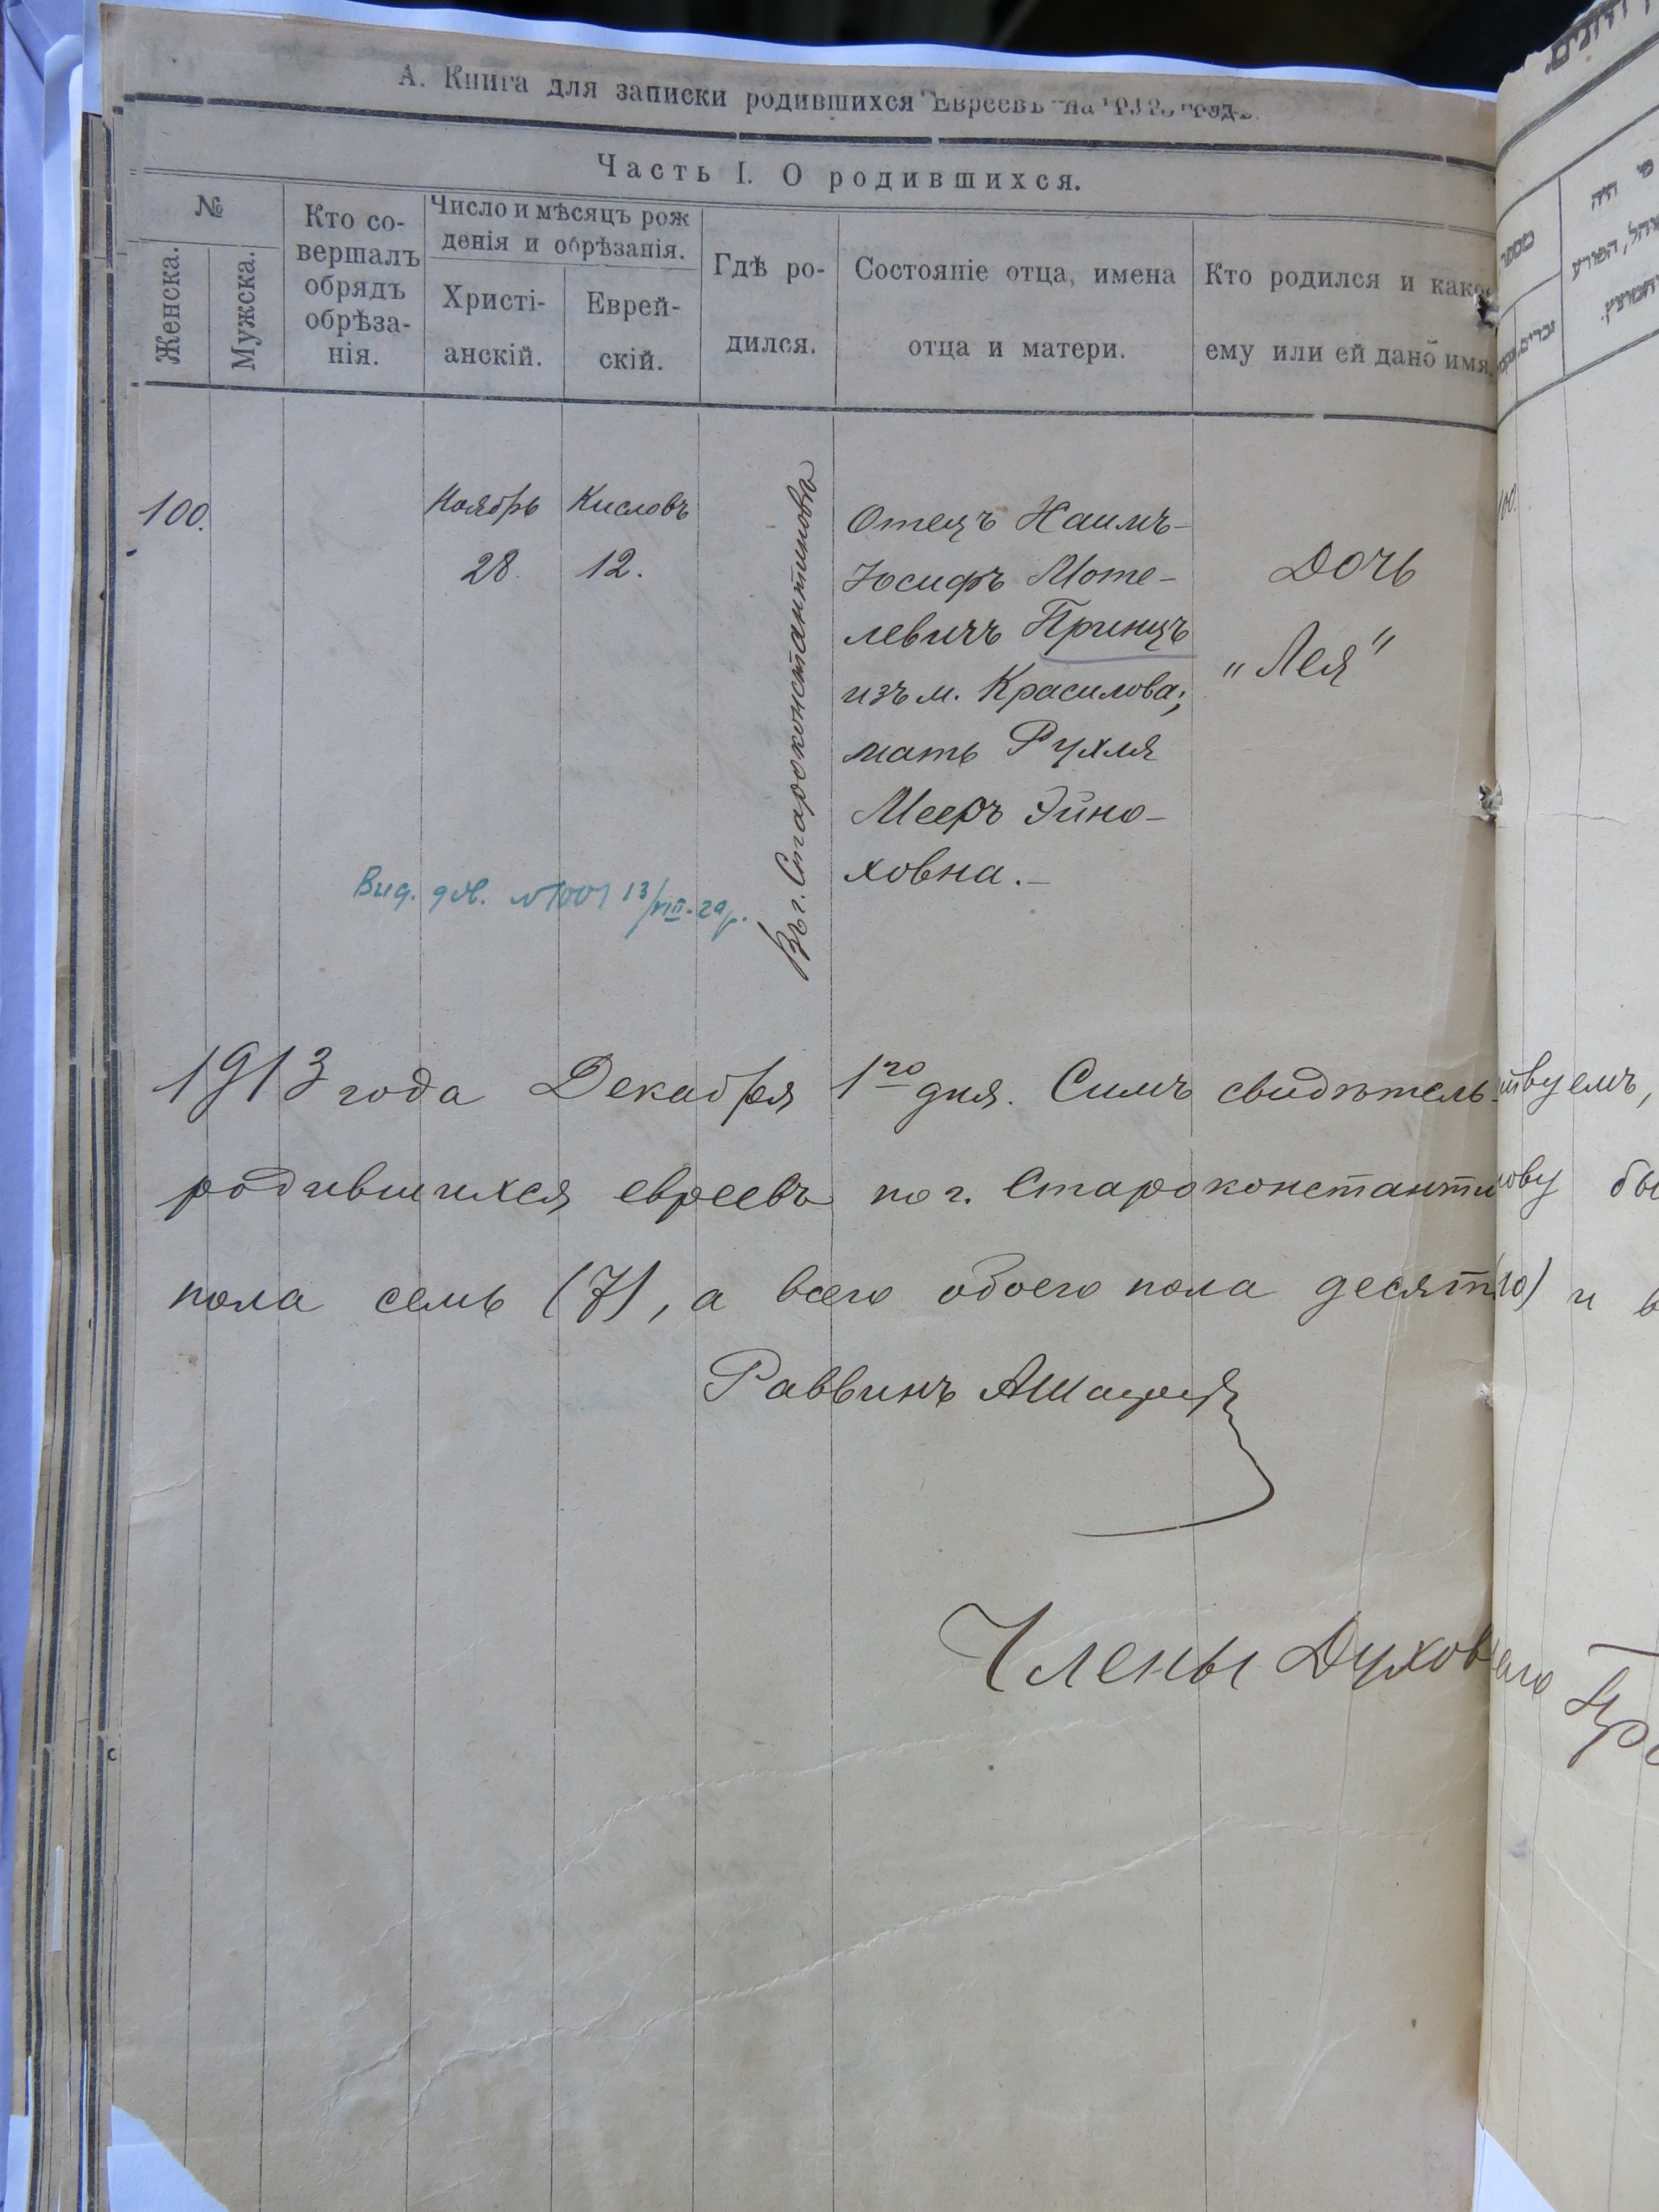 А. Книга для записки родившихся Евреевъ на 1913 годъ.
Часть I. О родившихся.
№
Женска.
Мужска.
Кто со-
вершалъ
обрядъ
обрѣза-
нія.
Число и мѣсяцъ рож
денія и обрѣзанія.
Христі-
анскій.
Еврей-
скій.
Гдѣ ро-
дился.
Состояніе отца, имена
отца и матери.
Кто родился и какое
ему или ей дано имя.
100.
Ноябрь
28.
Кисловъ
12.
Въ г. Староконстантиновѣ
Отецъ Хаимъ-
Іосифъ Моте-
левичъ Принцъ
изъ м. Красилова;
мать Рухля
Мееръ Эйно-
ховна.-
Дочь
„Лея"
Вид. дов. №1001 13/VIII-29р.
1913 года Декабря 1го дня. Симъ свидѣтельствуемъ,
родившихся евреевъ по г. Староконстантинову
пола семь (7), а всего обоего пола десять (10) и
Раввинъ
Члены Духовнаго
100.